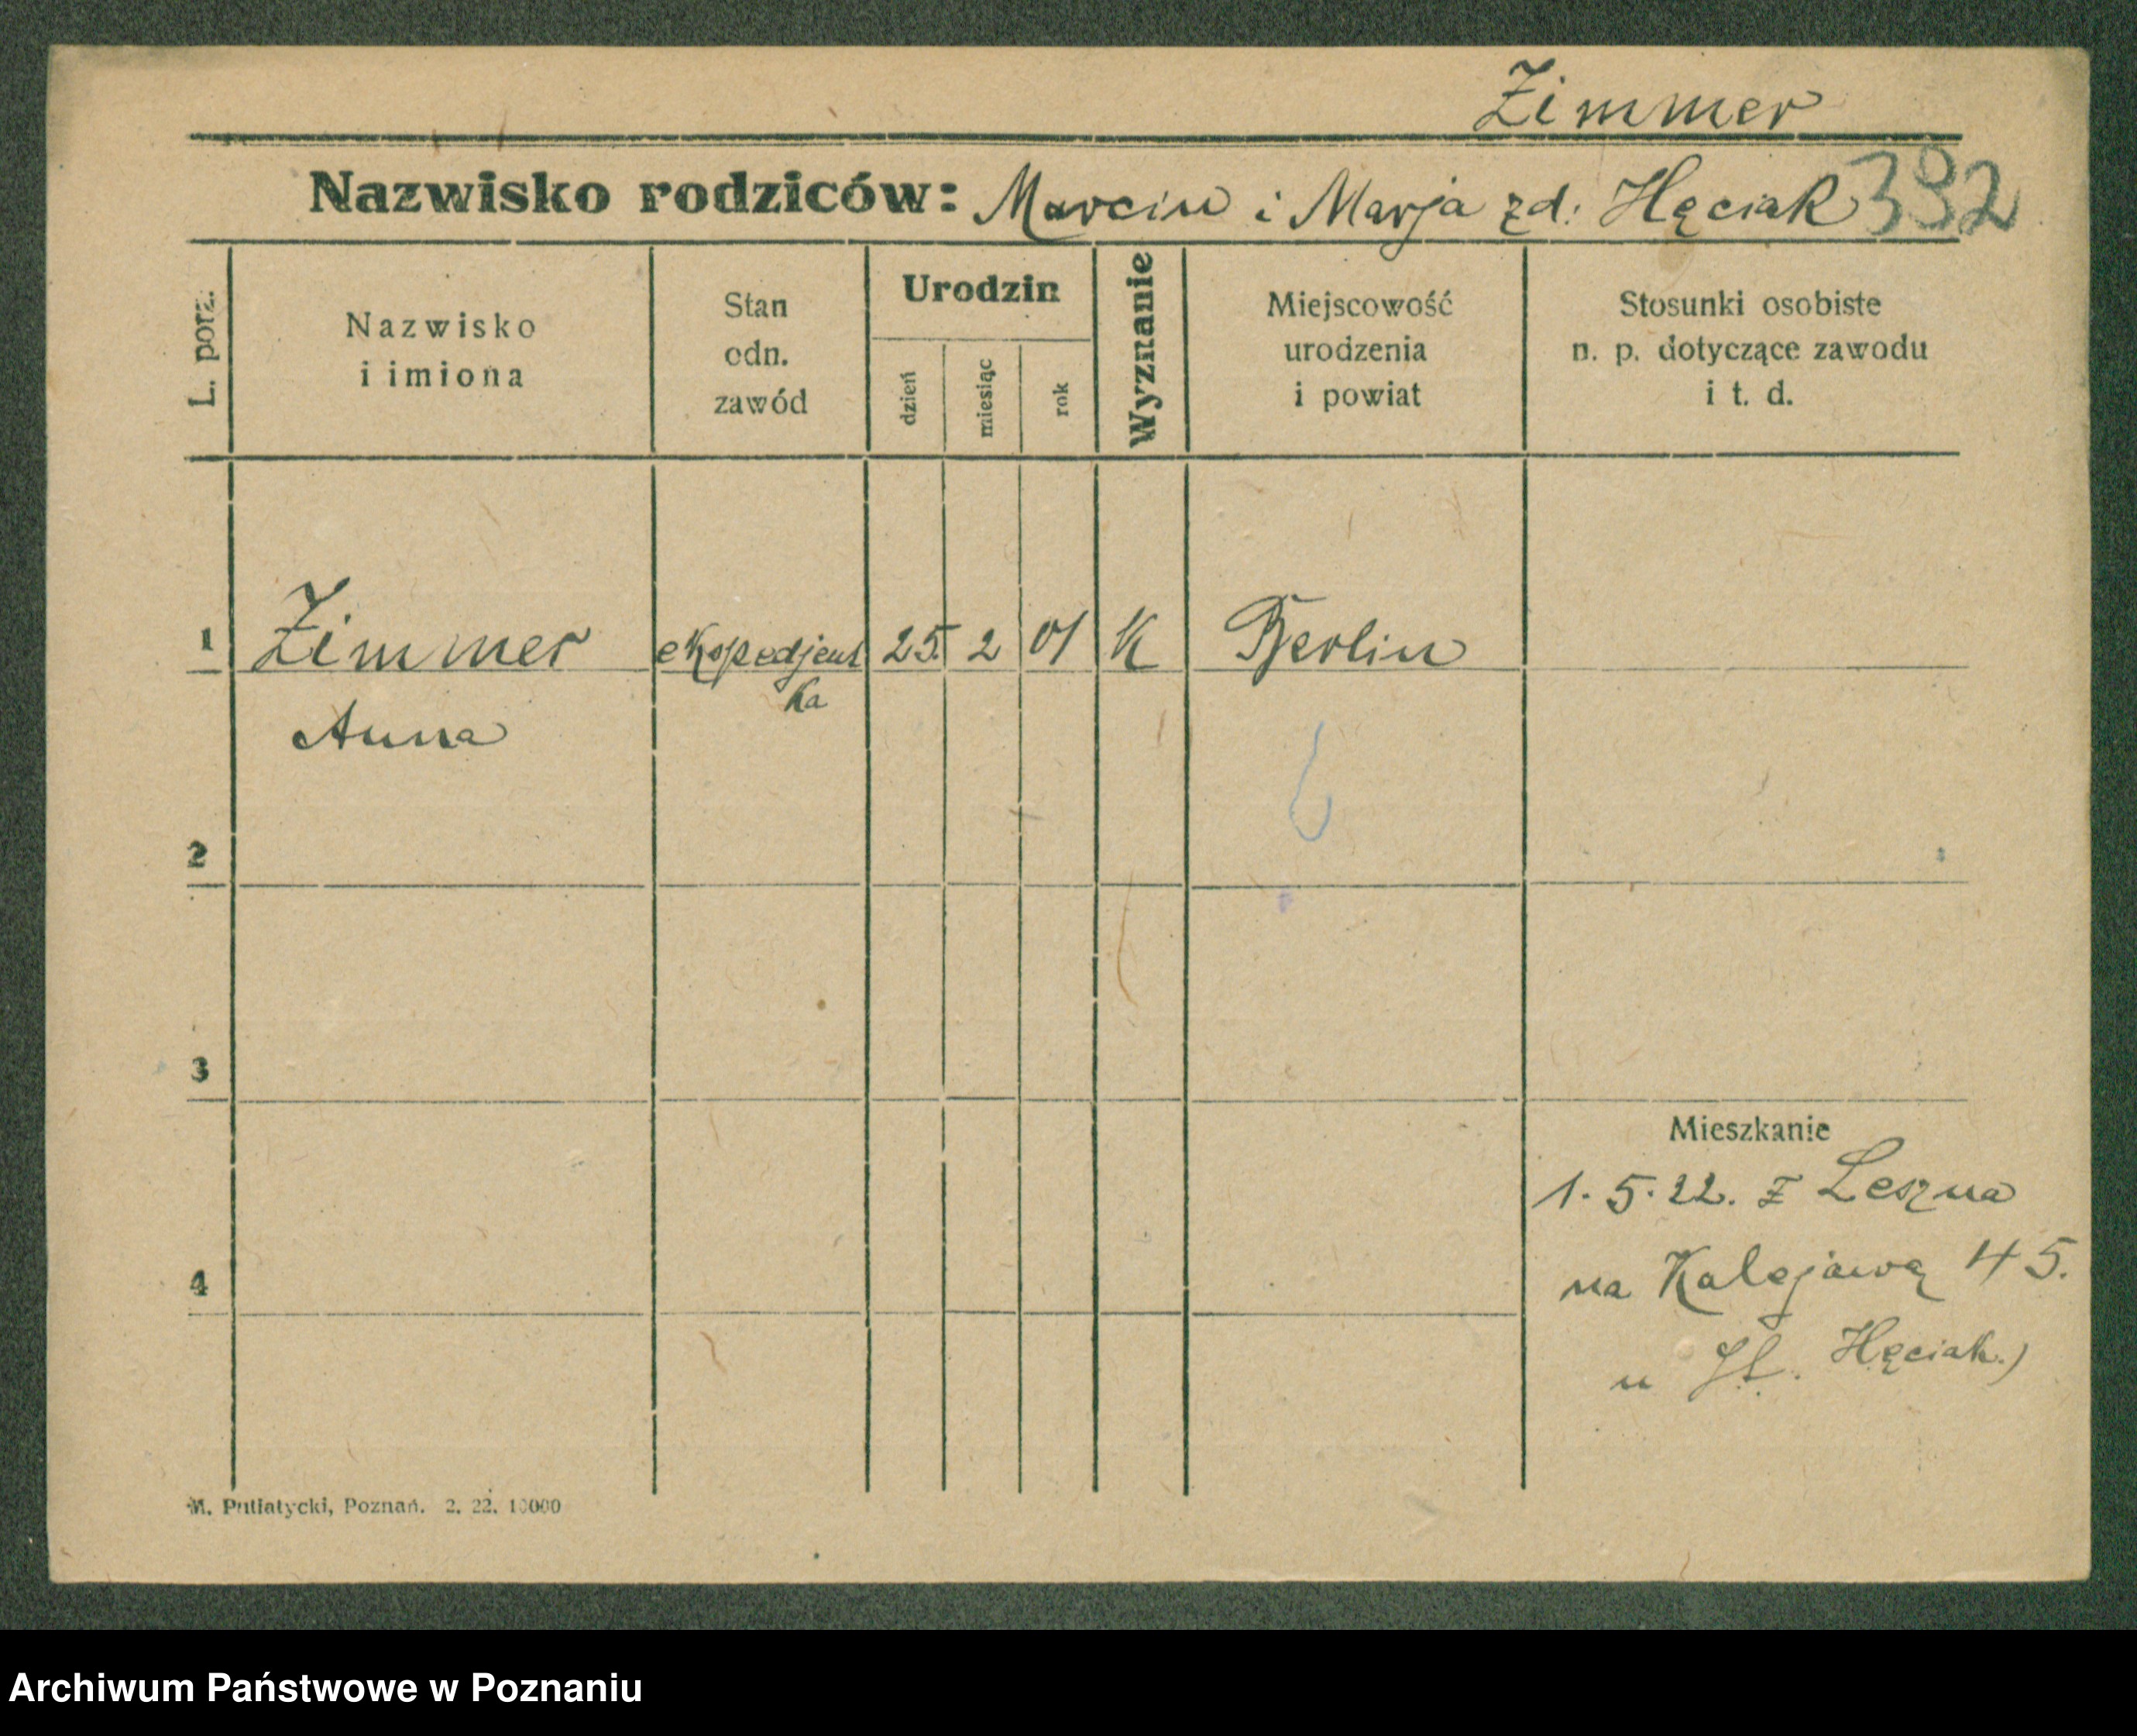 Zimmer
Nazwisko rodziców: Marcin i Marja zd: Hęciak 392
L. porz.
Nazwisko
i imiona
Stan
odn.
zawód
Urodzin
dzień
miesiąc
rok
Wyznanie
Miejscowość
urodzenia
i powiat
Stosunki osobiste
n. p. dotyczące zawodu
i t. d.
1 Zimmer ekspedjent 25. 2 01 K Berlin
ka
Anna
2
3
Mieszkanie
1. 5. 22. z Leszna
na Kolejową 45.
4
u Hęciak.)
M. Putiatycki, Poznań. 2. 22. 10000
Archiwum Państwowe w Poznaniu